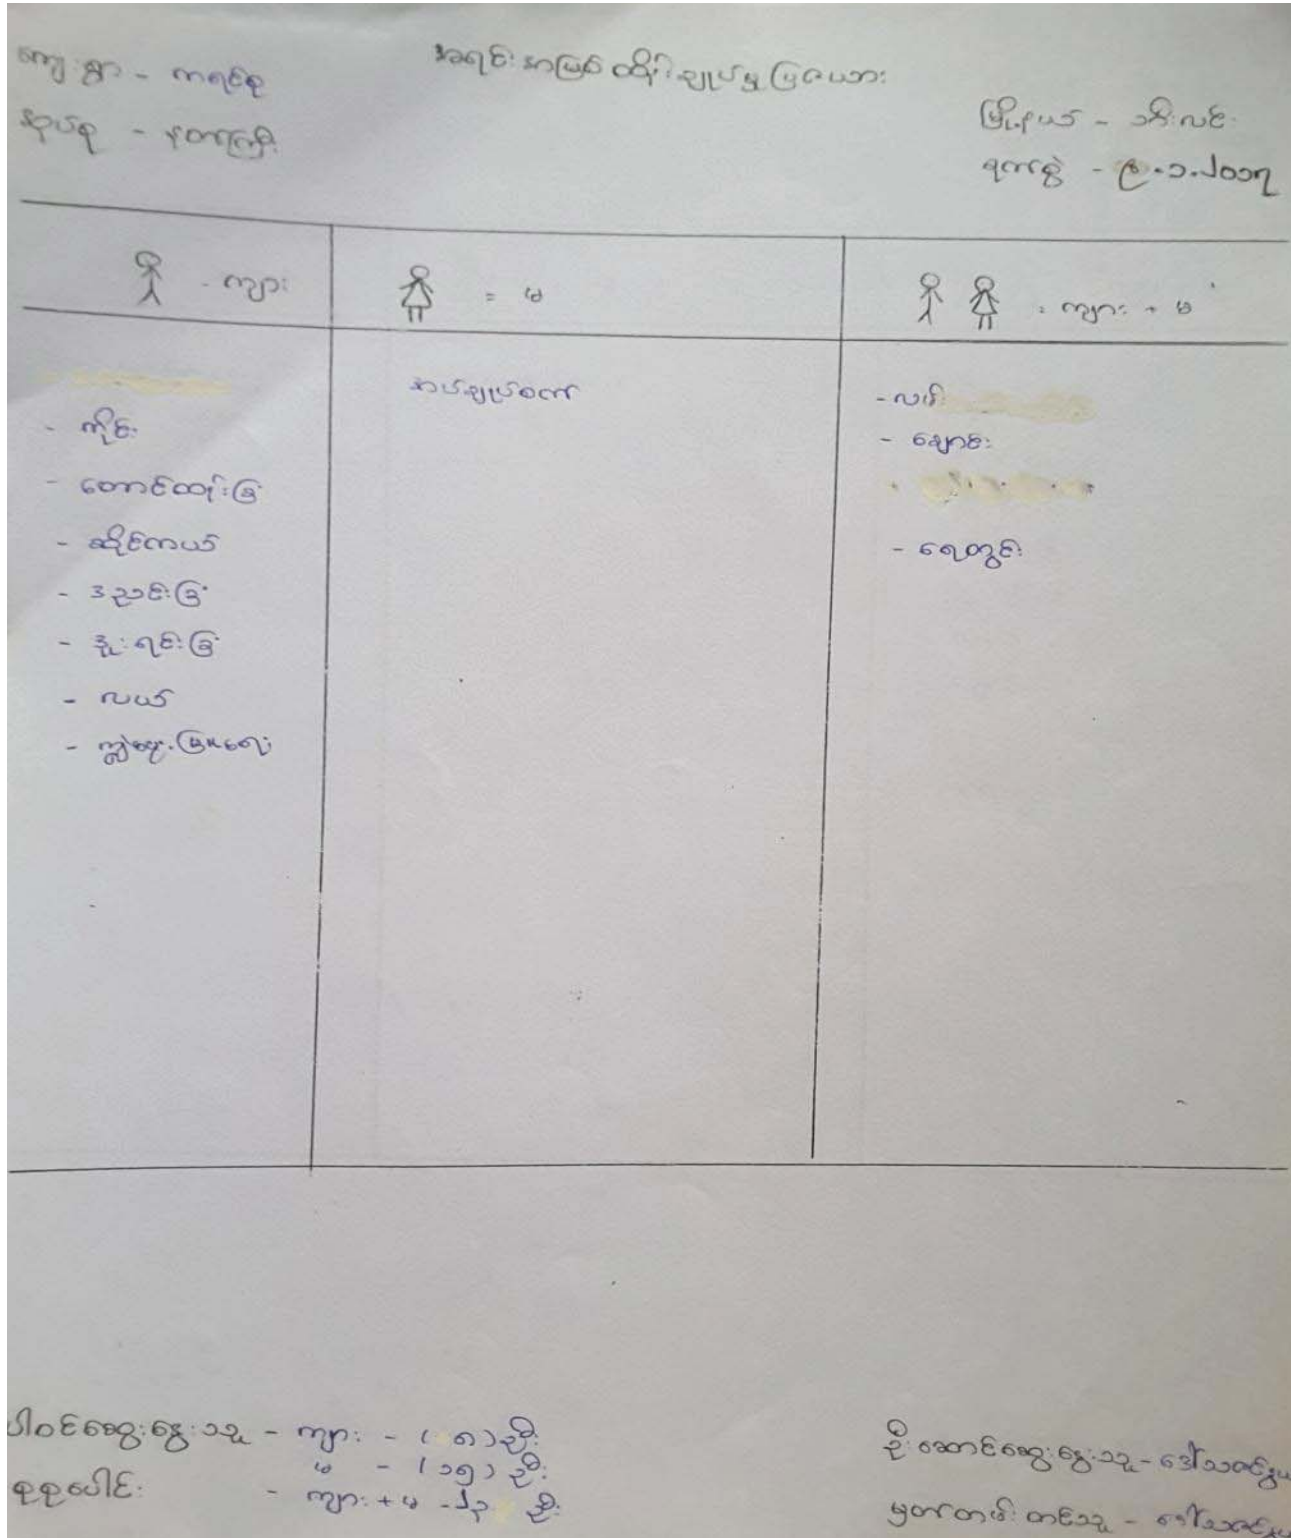 ကျေးရွာ - ကရင်စု
အုပ်စု - နတ်ကြီး
အရင်းအမြစ်ထိန်းချုပ်မှုပြဇယား
မြို့နယ် - သီးလင်း
ရက်စွဲ - ၉.၁.၂၀၁၇
- ကျား
= မ
= ကျား + မ
- ကိုင်း
- တောင်ထုံးခြံ
- ဆိုင်ကယ်
- ဒညင်းခြံ
- ဒူးရင်းခြံ
- လယ်
- ကျွဲမွေးမြူရေး
အပ်ချုပ်စက်
- လမ်း
- ချောင်း
- ရေတွင်း
ပါဝင်ဆွေးနွေးသူ - ကျား - ( ၈ ) ဦး
မ - ( ၁၅ ) ဦး
စုစုပေါင်း - ကျား + မ - ၂၃ ဦး
ဦးဆောင်ဆွေးနွေးသူ - ဒေါ်သဇင်နွယ်
မှတ်တမ်းတင်သူ - ဒေါ်သဇင်နွယ်